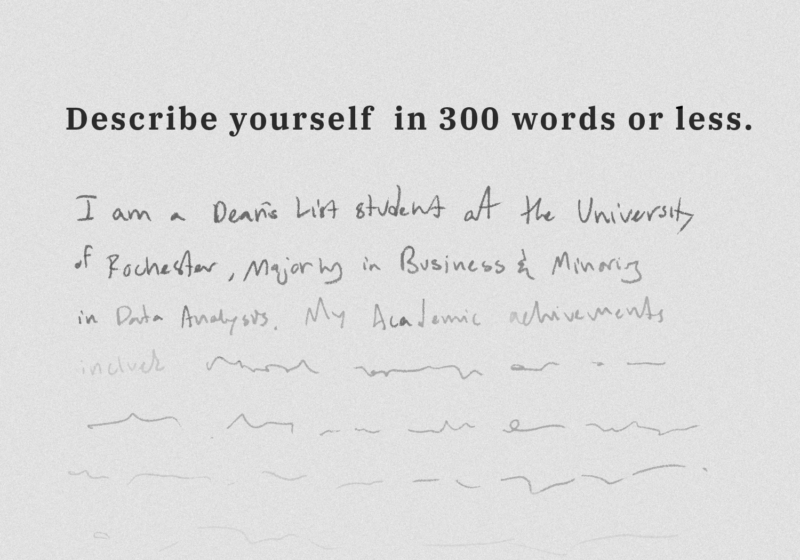 Describe yourself in 300 words or less.
I am a Dean's List student at the University
of Rochester, Majoring in Business & Minoring
in Data Analysis. My Academic achivements